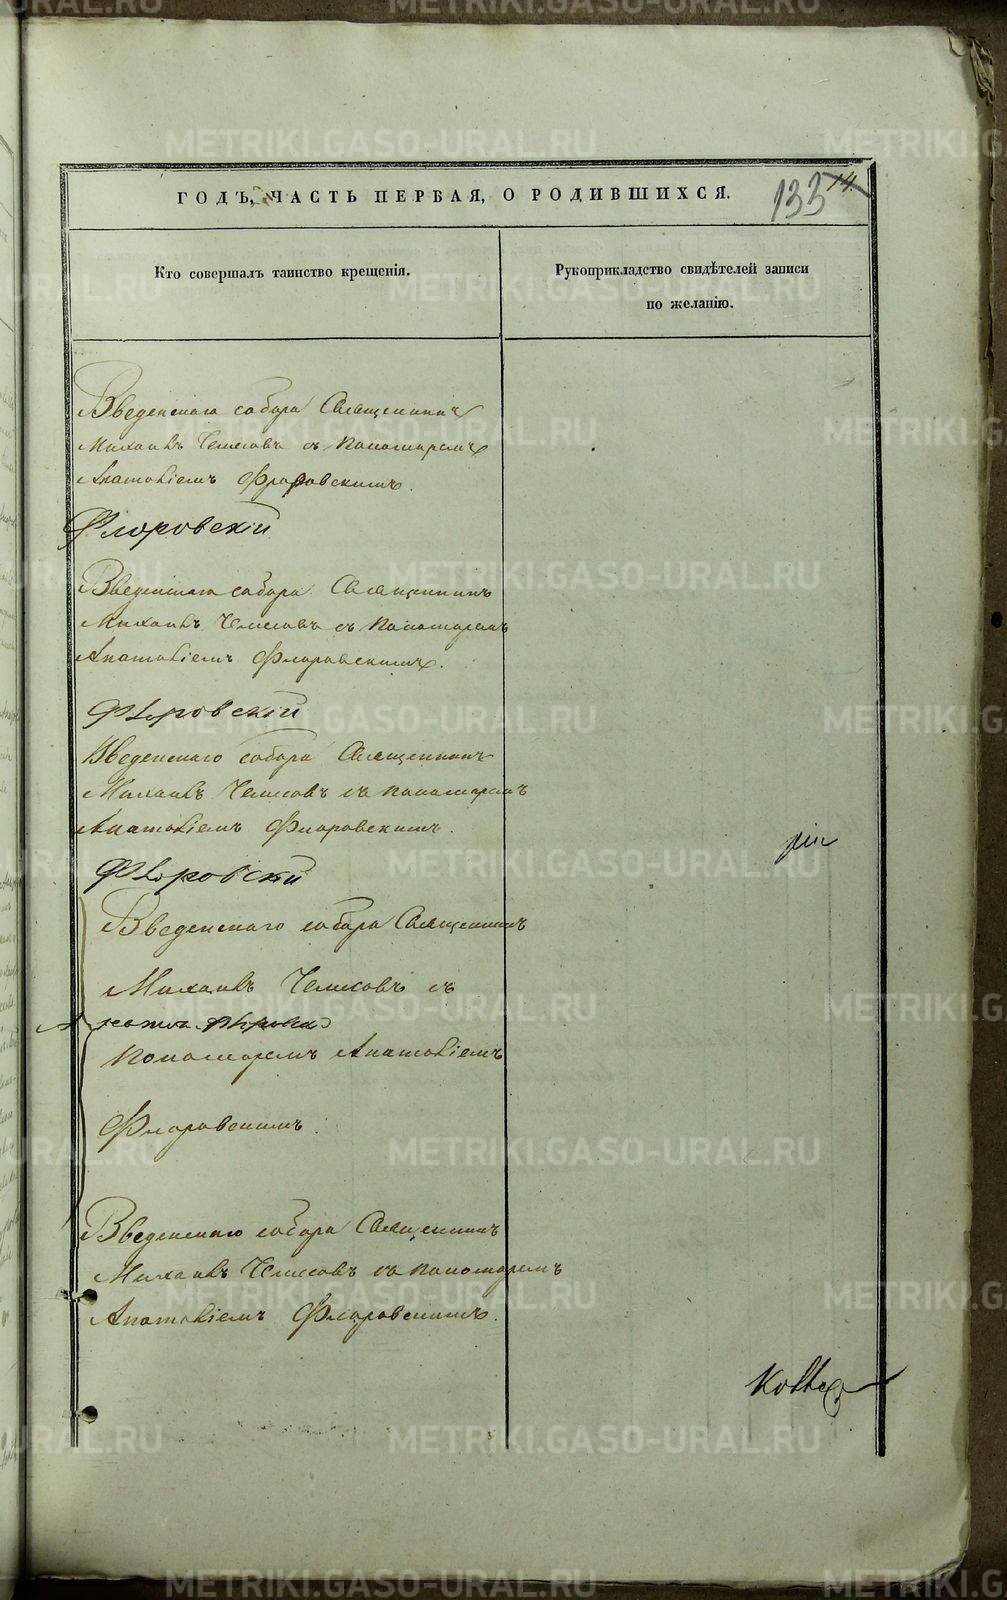 ГОДЪ, ЧАСТЬ ПЕРВАЯ, О РОДИВШИХСЯ.
133 14.
Кто совершалъ таинство крещенія.
Рукоприкладство свидѣтелей записи
по желанію.
Введенскаго собора Священникъ
Михаилъ съ Пономаремъ
Анатоліемъ Флоровскимъ.
Флоровскій
Введенскаго собора Священникъ
Михаилъ съ Пономаремъ
Анатоліемъ Флоровскимъ.
Флоровскій
Введенскаго собора Священникъ
Михаилъ съ пономаремъ
Анатоліемъ Флоровскимъ.
Флоровскій
Введенскаго собора Священникъ
Михаилъ съ
Пономаремъ Анатоліемъ
Флоровскимъ.
Введенскаго собора Священникъ
Михаилъ съ пономаремъ
Анатоліемъ Флоровскимъ.
METRIKI.GASO-URAL.RU